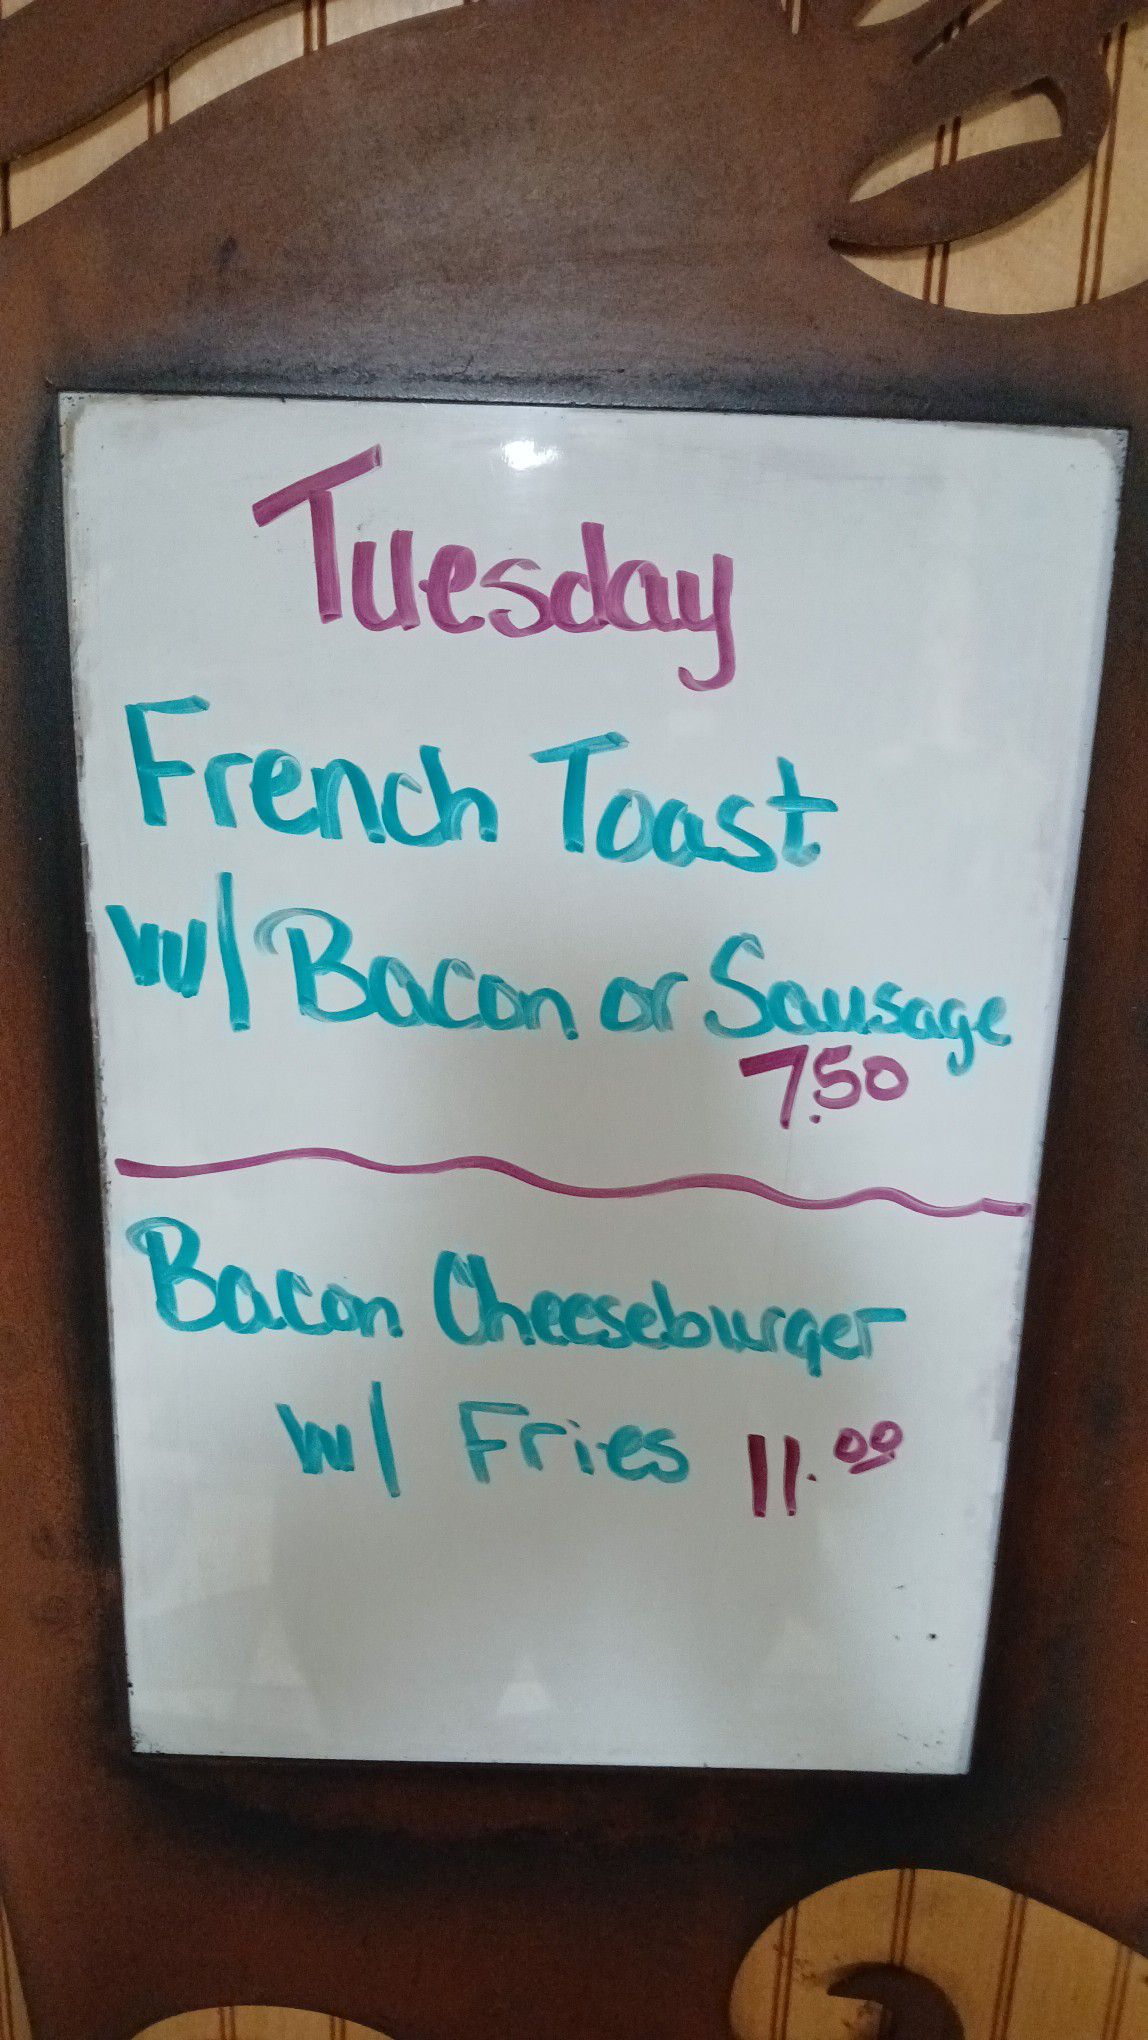 Tuesday
French Toast
w/ Bacon or Sausage
7.50
Bacon Cheeseburger
w/ Fries 11.00